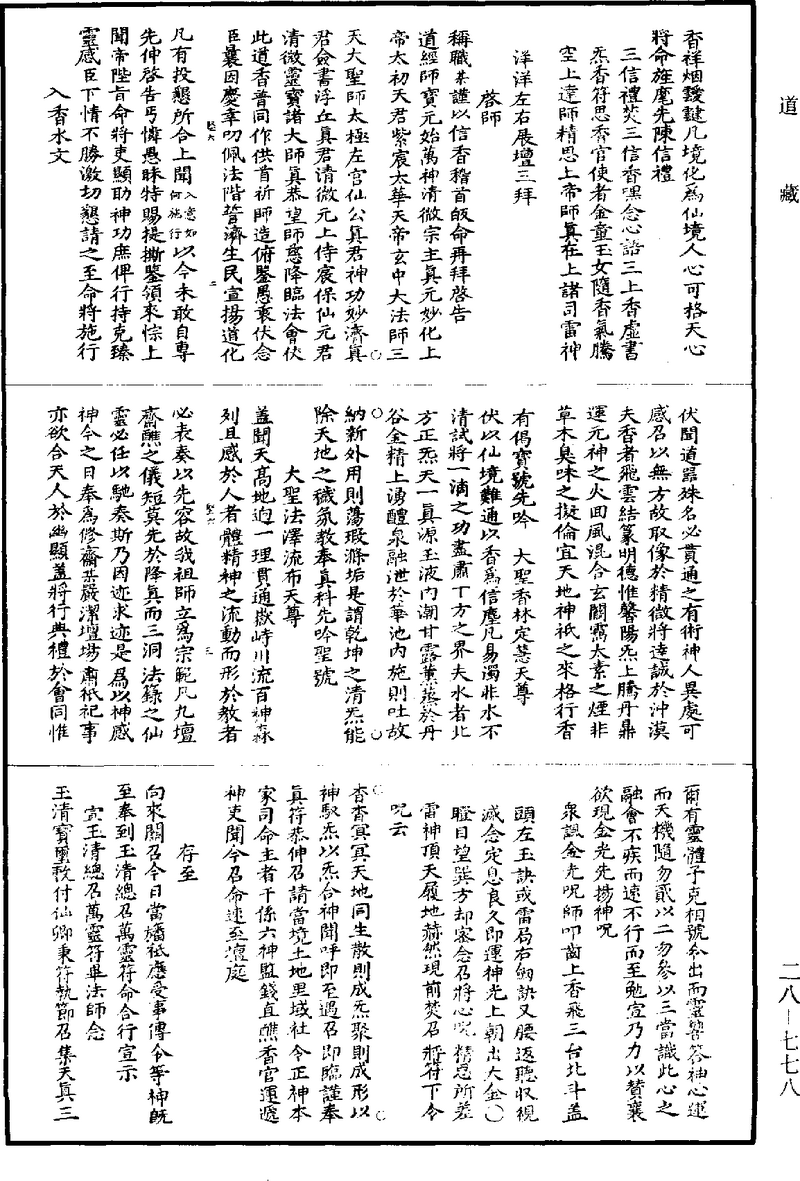 道藏
香祥烟靉靆凡境化為仙境人心可格天心
將命旌麾先陳信禮
三信禮焚三信香嘿念心語三上香虛書
炁香符思香官使者金童玉女隨香氣騰
空上達師精思上帝師真在上諸司雷神
洋洋左右展壇三拜
啓師
稱職某謹以信香稽首皈命再拜啓告
道經師寶元始萬神清微宗主真元妙化上
帝太初天君紫宸太華天帝玄中大法師三
天大聖師太極左宮仙公真君神功妙濟真
君僉書浮丘真君清微元上侍宸保仙元君
清微靈寶諸大師真恭望師慈降臨法會伏
此道香普同作供首祈師造俯鑒愚衷伏念
臣曩因慶幸叨佩法階誓濟生民宣揚道化
凡有投懇所合上聞入意如何施行以今未敢自專
先伸啓告丐憐愚昧特賜提撕鑒領來悰上
聞帝陛旨命將吏顯助神功庶俾行持克臻
靈感臣下情不勝激切懇請之至命將施行
入香水文
伏聞道器殊名必貫通之有術神人異處可
感召以無方故取像於精微將達誠於沖漠
夫香者飛雲結篆明德惟馨陽炁上騰丹鼎
運元神之火回風混合玄關靄太素之煙非
草木臭味之擬倫宜天地神祇之來格行香
有偈寶號先吟　大聖香林定慧天尊
伏以仙境難通以香為信塵凡易濁非水不
清試將一滴之功盡肅十方之界夫水者北
方正炁天一真源玉液內潮甘露薰蒸於丹
谷金精上湧醴泉融泄於華池內施則吐故
納新外用則蕩瑕滌垢是謂乾坤之清炁能
除天地之穢氛敎奉真科先吟聖號
大聖法澤流布天尊
蓋聞天高地逈一理貫通嶽峙川流百神森
列且感於人者體精神之流動而形於敎者
必表奏以先容故我祖師立為宗範凡九壇
齋醮之儀短莫先於降真而三洞法籙之仙
靈必任以馳奏斯乃因迹求迹是為以神感
神今之日奉為修齋某嚴潔壇場肅祇祀事
亦欲合天人於幽顯蓋將行典禮於會同惟
爾有靈體予克相號令出而靈響答神心運
而天機隨勿貳以二勿參以三當識此心之
融會不疾而速不行而至勉宣乃力以贊襄
欲現金光先揚神呪
衆諷金光呪師叩齒上香飛三台北斗蓋
頭左玉訣或雷局右劒訣又腰返聽收視
滅念定息良久即運神光上朝出大金〇
瞪目望巽方却密念召將心呪精思所差
雷神頂天履地赫然現前焚召將符下令
呪云
杳杳冥冥天地同生散則成炁聚則成形以
神馭炁以炁合神聞呼即至遇召即臨謹奉
真符恭伸召請當境土地里域社令正神本
家司命主者干係六神監錢直醮香官運遞
神吏聞今召命速至壇庭
存至
向來關召今日當壇祇應受事傳令等神旣
至奉到玉清總召萬靈符命合行宣示
宣玉清總召萬靈符畢法師念
玉清寶璽敕付仙卿秉符執節召集天真三
二八－七七八